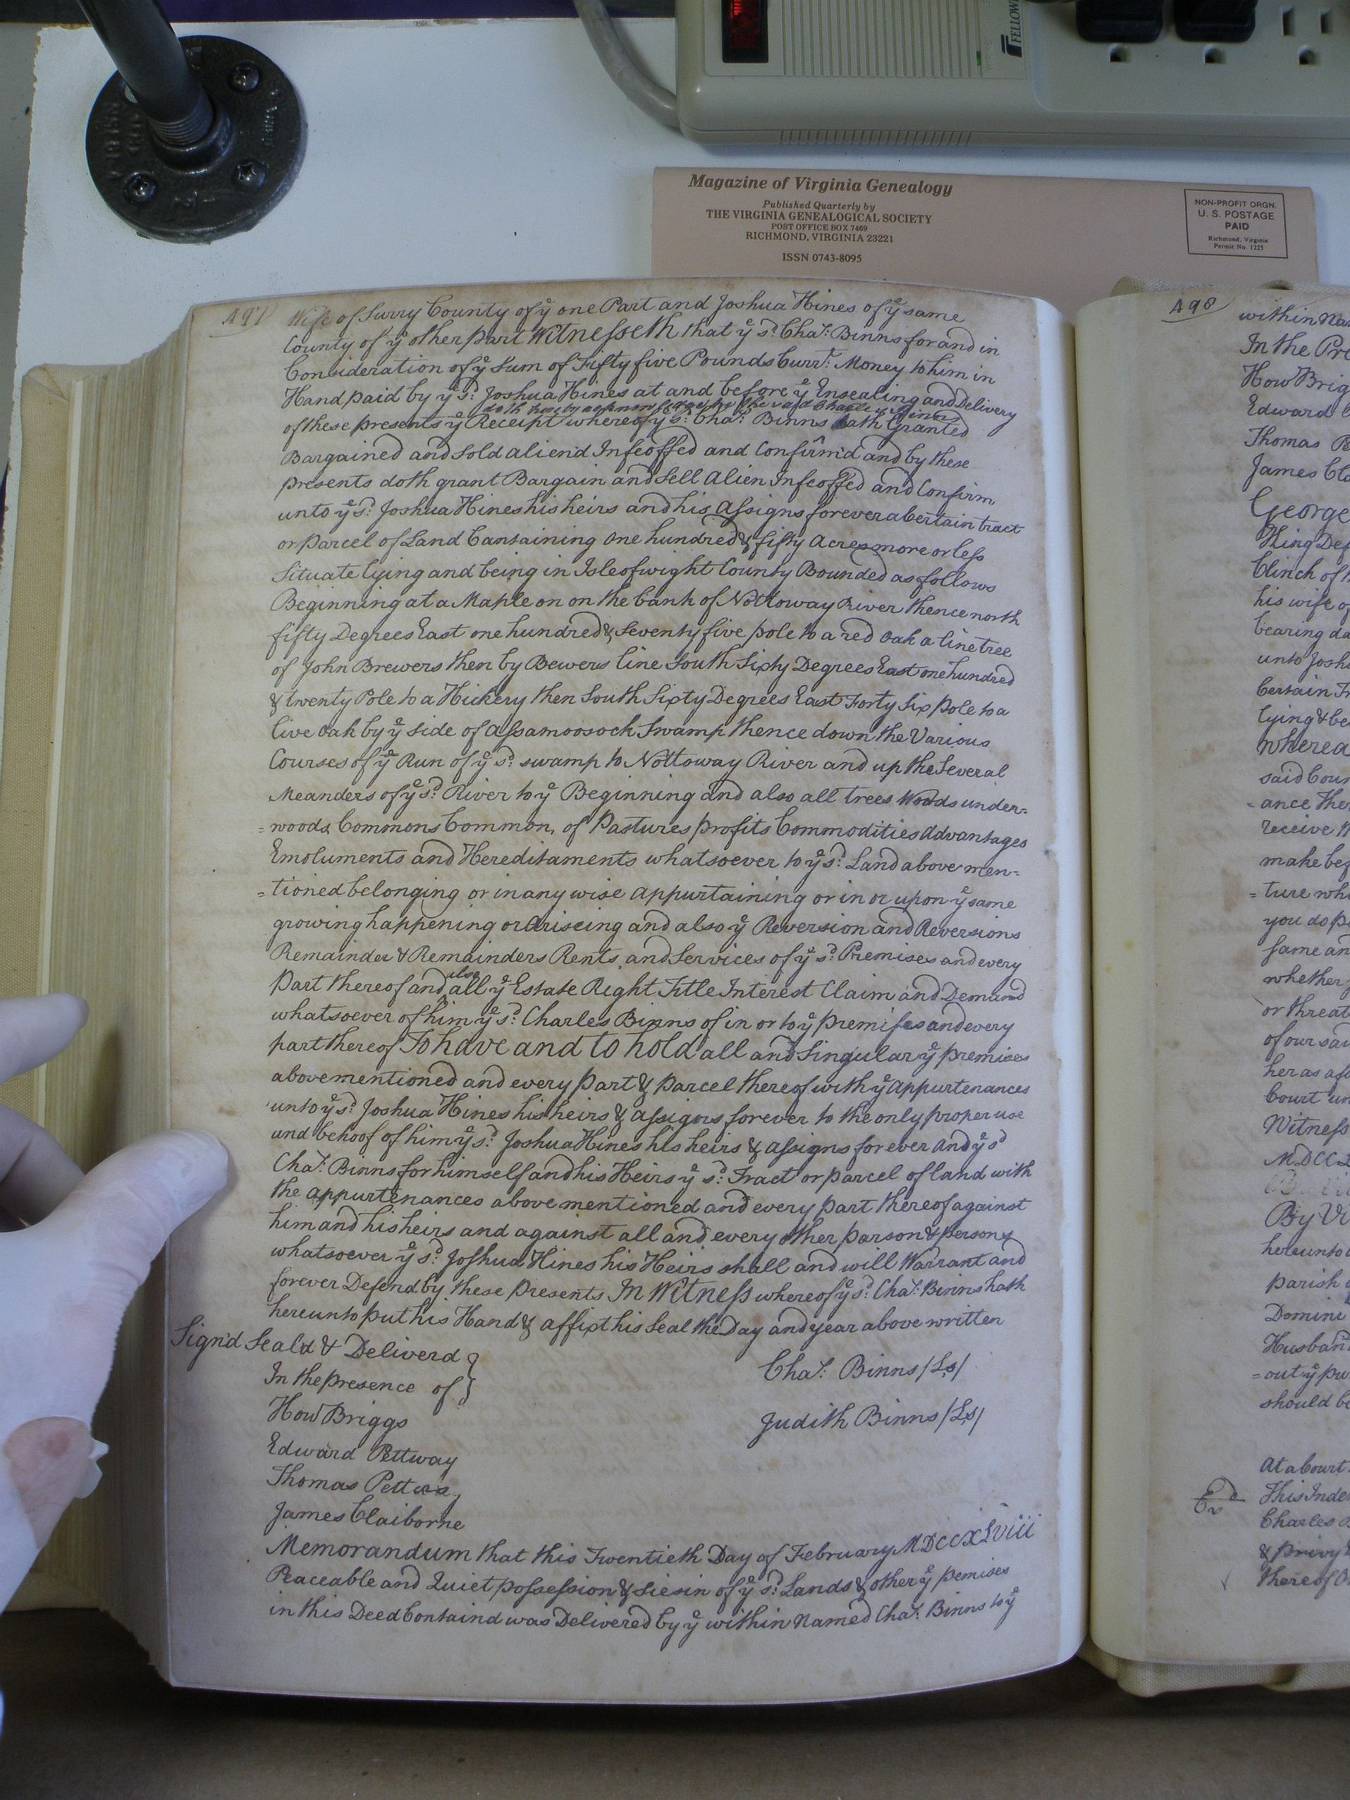 FELLOW
Magazine of Virginia Genealogy
Published Quarterly by
THE VIRGINIA GENEALOGICAL SOCIETY
POST OFFICE BOX 7469
RICHMOND, VIRGINIA 23221
ISSN 0743-8095
NON-PROFIT ORGN.
U. S. POSTAGE
PAID
Richmond, Virginia
Permit No. 1225
497
Wife of Surry County of ye one Part and Joshua Hines of ye same
County of ye other part Witnesseth that ye sd. Chas. Binns for and in
Consideration of ye Sum of Fifty five Pounds Currt. Money to him in
Hand paid by ye sd. Joshua Hines at and before ye Ensealing and Delivery
doth hereby acknowledge by the said Charles Binns
of these presents ye Receipt whereof ye sd. Chas. Binns hath Granted
Bargained and Sold aliend Infeoffed and Confirm'd and by these
presents doth grant Bargain and Sell Alien Infeoffed and Confirm
unto ye sd. Joshua Hines his heirs and his Assigns forever a Certain tract
or parcel of Land Containing one hundred & fifty Acres more or less
Situate lying and being in Isle of wight County Bounded as follows
Beginning at a Maple on on the bank of Nottoway River thence north
fifty Degrees East one hundred & Seventy five pole to a red Oak a line tree
of John Brewers then by Bewers line South Sixty Degrees East one hundred
& twenty Pole to a Hickery then South Sixty Degrees East Forty Six pole to a
live oak by ye side of Assamoosock Swamp thence down the Various
Courses of ye Run of ye sd. swamp to Nottoway River and up the Several
Meanders of ye sd. River to ye Beginning and also all trees Woods under-
=woods Commons Common, of Pastures profits Commodities Advantages
Emoluments and Hereditaments whatsoever to ye sd. Land above men-
=tioned belonging or in any wise appurtaining or in or upon ye same
growing happening or Ariseing and also ye Reversion and Reversions
Remainder & Remainders Rents and Services of ye sd. Premises and every
also
Part thereof and all ye Estate Right Title Interest Claim and Demand
whatsoever of him ye sd. Charles Binns of in or to ye premises and every
part thereof To have and to hold all and Singular ye premises
above mentioned and every Part & Parcel thereof with ye Appurtenances
unto ye sd. Joshua Hines his heirs & assigns forever to the only proper use
and behoof of him ye sd. Joshua Hines his heirs & assigns for ever and ye sd
Chas. Binns for himself and his Heirs ye sd. Tract or parcel of land with
the appurtenances above mentioned and every part thereof against
him and his heirs and against all and every other parson & persons
whatsoever ye sd. Joshua Hines his Heirs shall and will Warrant and
forever Defend by these Presents In Witness whereof ye sd. Chas. Binns hath
hereunto put his Hand & affixt his Seal the Day and year above written
Sign'd Seald & Deliverd
In the presence of
Chas. Binns (Ls)
How Briggs
Judith Binns (Ls)
Edward Pettway
Thomas
James Claiborne
Memorandum that this Twentieth Day of February MDCCXLviii
Peaceable and Quiet possession & Siesin of ye sd. Lands & other ye pemises
in this Deed Containd was Delivered by ye within Named Chas. Binns to ye
498
within
In the Pre
How Brig
Edward
Thomas
James Cla
George
King Def
Clinch of
his wife of
bearing da
unto Josh
Certain
lying & be
Wherea
said Coun
=ance The
receive
make
=ture wh
you do
same an
whether
or threat
of our sai
her as
Court un
Witness
MDCCL
By Vi
hereunto
parish
Domini
Husband
=out ye pu
should be
At a Court
This Inde
Charles
& privy
thereof